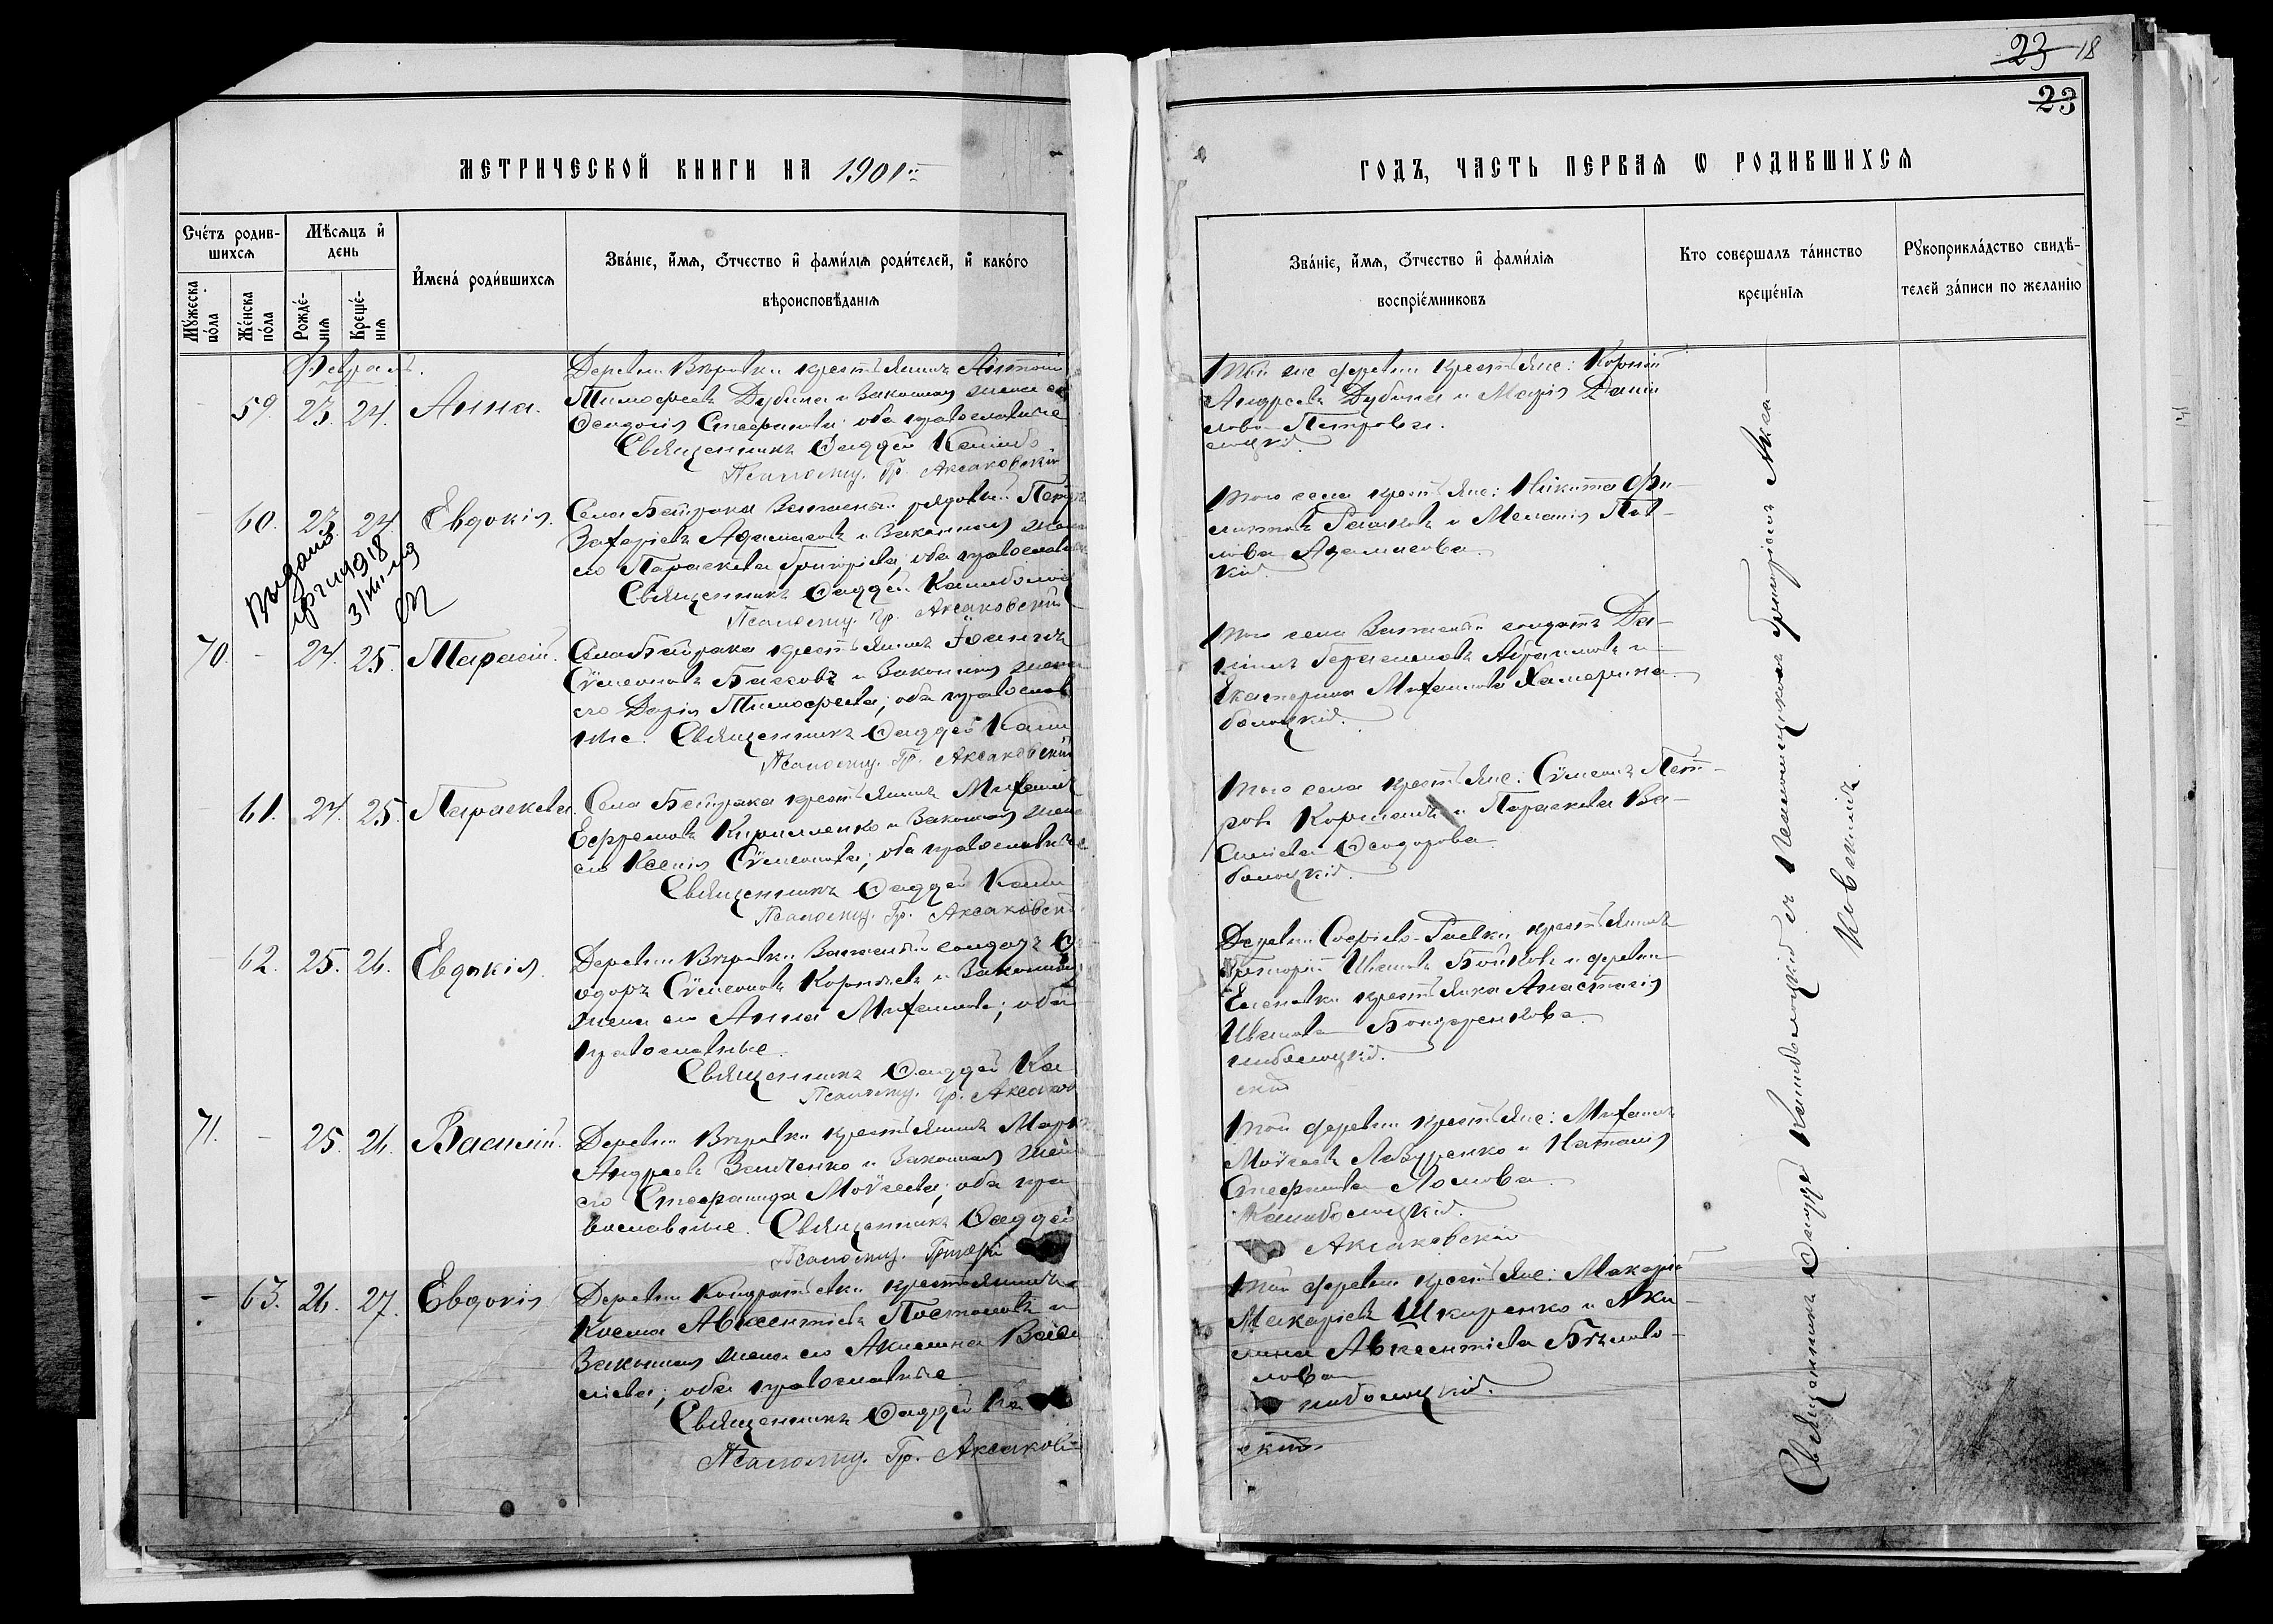 23 18
23
МЕТРИЧЕСКОЙ КНИГИ НА 1901
ГОДЪ, ЧАСТЬ ПЕРВАЯ Ѡ РОДИВШИХСЯ
Счетъ родив-
шихся
Мужеска
пола
Женска
пола
Мѣсяцъ и
день
Рожде-
нія
Креще-
нія
Имена родившихся
Званіе, имя, отчество и фамилія родителей, и какого
вѣроисповѣданія
Званіе, имя, отчество и фамилія
воспріемниковъ
Кто совершалъ таинство
крещенія
Рукоприкладство свидѣ-
телей записи по желанію
Февраль.
59. 23. 24. Анна.
Деревни Вѣровки крестьянинъ Антоній
Тимофеевъ Дубина и законная жена его
Феодосія Стефанова; оба православные
Священникъ Фаддей Камбо
Псаломщ. Гр. Аксаковскій
Той же деревни крестьяне: Корнилій
Андреевъ Дубина и Марія Дани
лова Петрова.
лоцкій.
60. 23. 24. Евдокія.
Села Батрака запасный рядовой
Захаріевъ Адамасовъ и законная жена
его Параскева Григоріева; оба православн
Священникъ Фаддей Камболоц
Псаломщ. Гр. Аксаковскій
Того села крестьяне: Никита Фи-
липповъ и Меланія Пав-
лова Адамасова.
кій.
3/III
70. - 24. 25. Тарасій.
Села Батрака крестьянинъ Іоаннъ
Сѵмеоновъ Басковъ и законная жена
его Дарія Тимофеева; оба православ
ные. Священникъ Фаддей Кам
Псаломщ. Гр. Аксаковскій
Того села запасный солдатъ Да-
ніилъ Герасимовъ Абрамовъ и
Екатерина Михаилова Хамерина.
болоцкій.
61. 24. 25. Параскева.
Села Батрака крестьянинъ Михаилъ
Ефремовъ Кириленко и законная жена
его Ксенія Сѵмеонова; оба православные
Священникъ Фаддей Кам
Псаломщ. Гр. Аксаковскі
Того села крестьяне: Сѵмеонъ Пет-
ровъ и Параскева Ва-
силіева Феодорова.
болоцкій.
62. 25. 26. Евдокія.
Деревни Вѣровки запасный солдатъ Фе
одоръ Сѵмеоновъ Корнѣевъ и законная
жена его Анна Михаилова; оба
православные.
Священникъ Фаддей Ка
Псаломщ. Гр. Аксаков
Деревни Софіево-Раевки крестьянинъ
Григорій Ивановъ Бойковъ и деревни
Еленовки крестьянка Анастасія
Иванова Бондаренкова.
мболоцкій.
скій
71. - 25. 26. Василій.
Деревни Вѣровки крестьянинъ Марк
Андреевъ Заиченко и законная жена
его Стефанида Моѵсеева; оба пра
вославные. Священникъ Фаддей
Псаломщ. Григорі
Той деревни крестьяне: Михаилъ
Моѵсеевъ Лабуренко и Наталія
Стефанова Ломова.
Камболоцкій.
Аксаковскій
- 63. 26. 27. Евдокія
Деревни Кондратьевки крестьянинъ
Косма Авксентіевъ Постоловъ и
законная жена его Акилина Васи
ліева; оба православные.
Священникъ Фаддей Ка
Псаломщ. Гр. Аксаков
Той деревни крестьяне: Макарій
Макаріевъ Шкиренко и Аки-
лина Авксентіева Бѣлово-
лова
мболоцкій.
скій
Священникъ Фаддей Камболоцкій съ Псаломщикомъ Григоріемъ Акса-
ковскимъ.